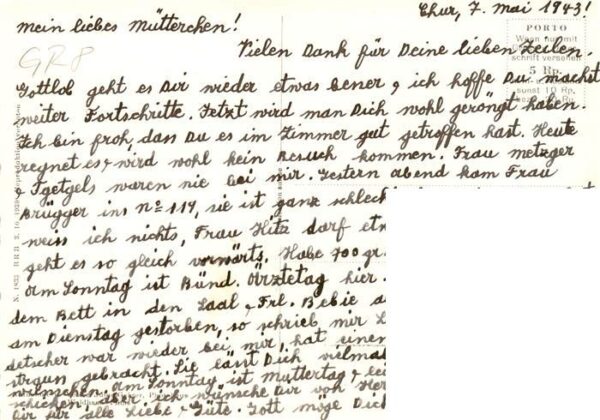 Chur, 7. Mai 1943!
Mein liebes Mütterchen!
PORTO
Vielen Dank für Deine lieben Zeilen.
GR8
Gottlob geht es Dir wieder etwas besser, ich hoffe Du machst
weiter Fortschritte. Jetzt wird man Dich wohl geröngt haben.
Ich bin froh, dass Du es im Zimmer gut getroffen hast. Heute
regnet es, wird wohl kein Besuch kommen. Frau Metzger
waren nie bei mir. Gestern abend kam Frau
Brügger ins No 119, sie ist ganz schlech
weiss ich nichts, Frau Hitz darf etw
geht es so gleich vorwärts. Habe 700 gr.
Am Sonntag ist Bünd. Ärztetag hier.
dem Bett in den Saal, Frl. Bebie a
am Dienstag gestorben, so schrieb mir
detscher war wieder bei mir, hat einen
gebracht. Sie lässt Dich vielmal
wünschen. Am Sonntag ist Muttertag
schicken, aber ich wünsche Dir von Her
Dir für alle Liebe & Güte. Gott möge Dich
5 Rp.
sonst 10 Rp.